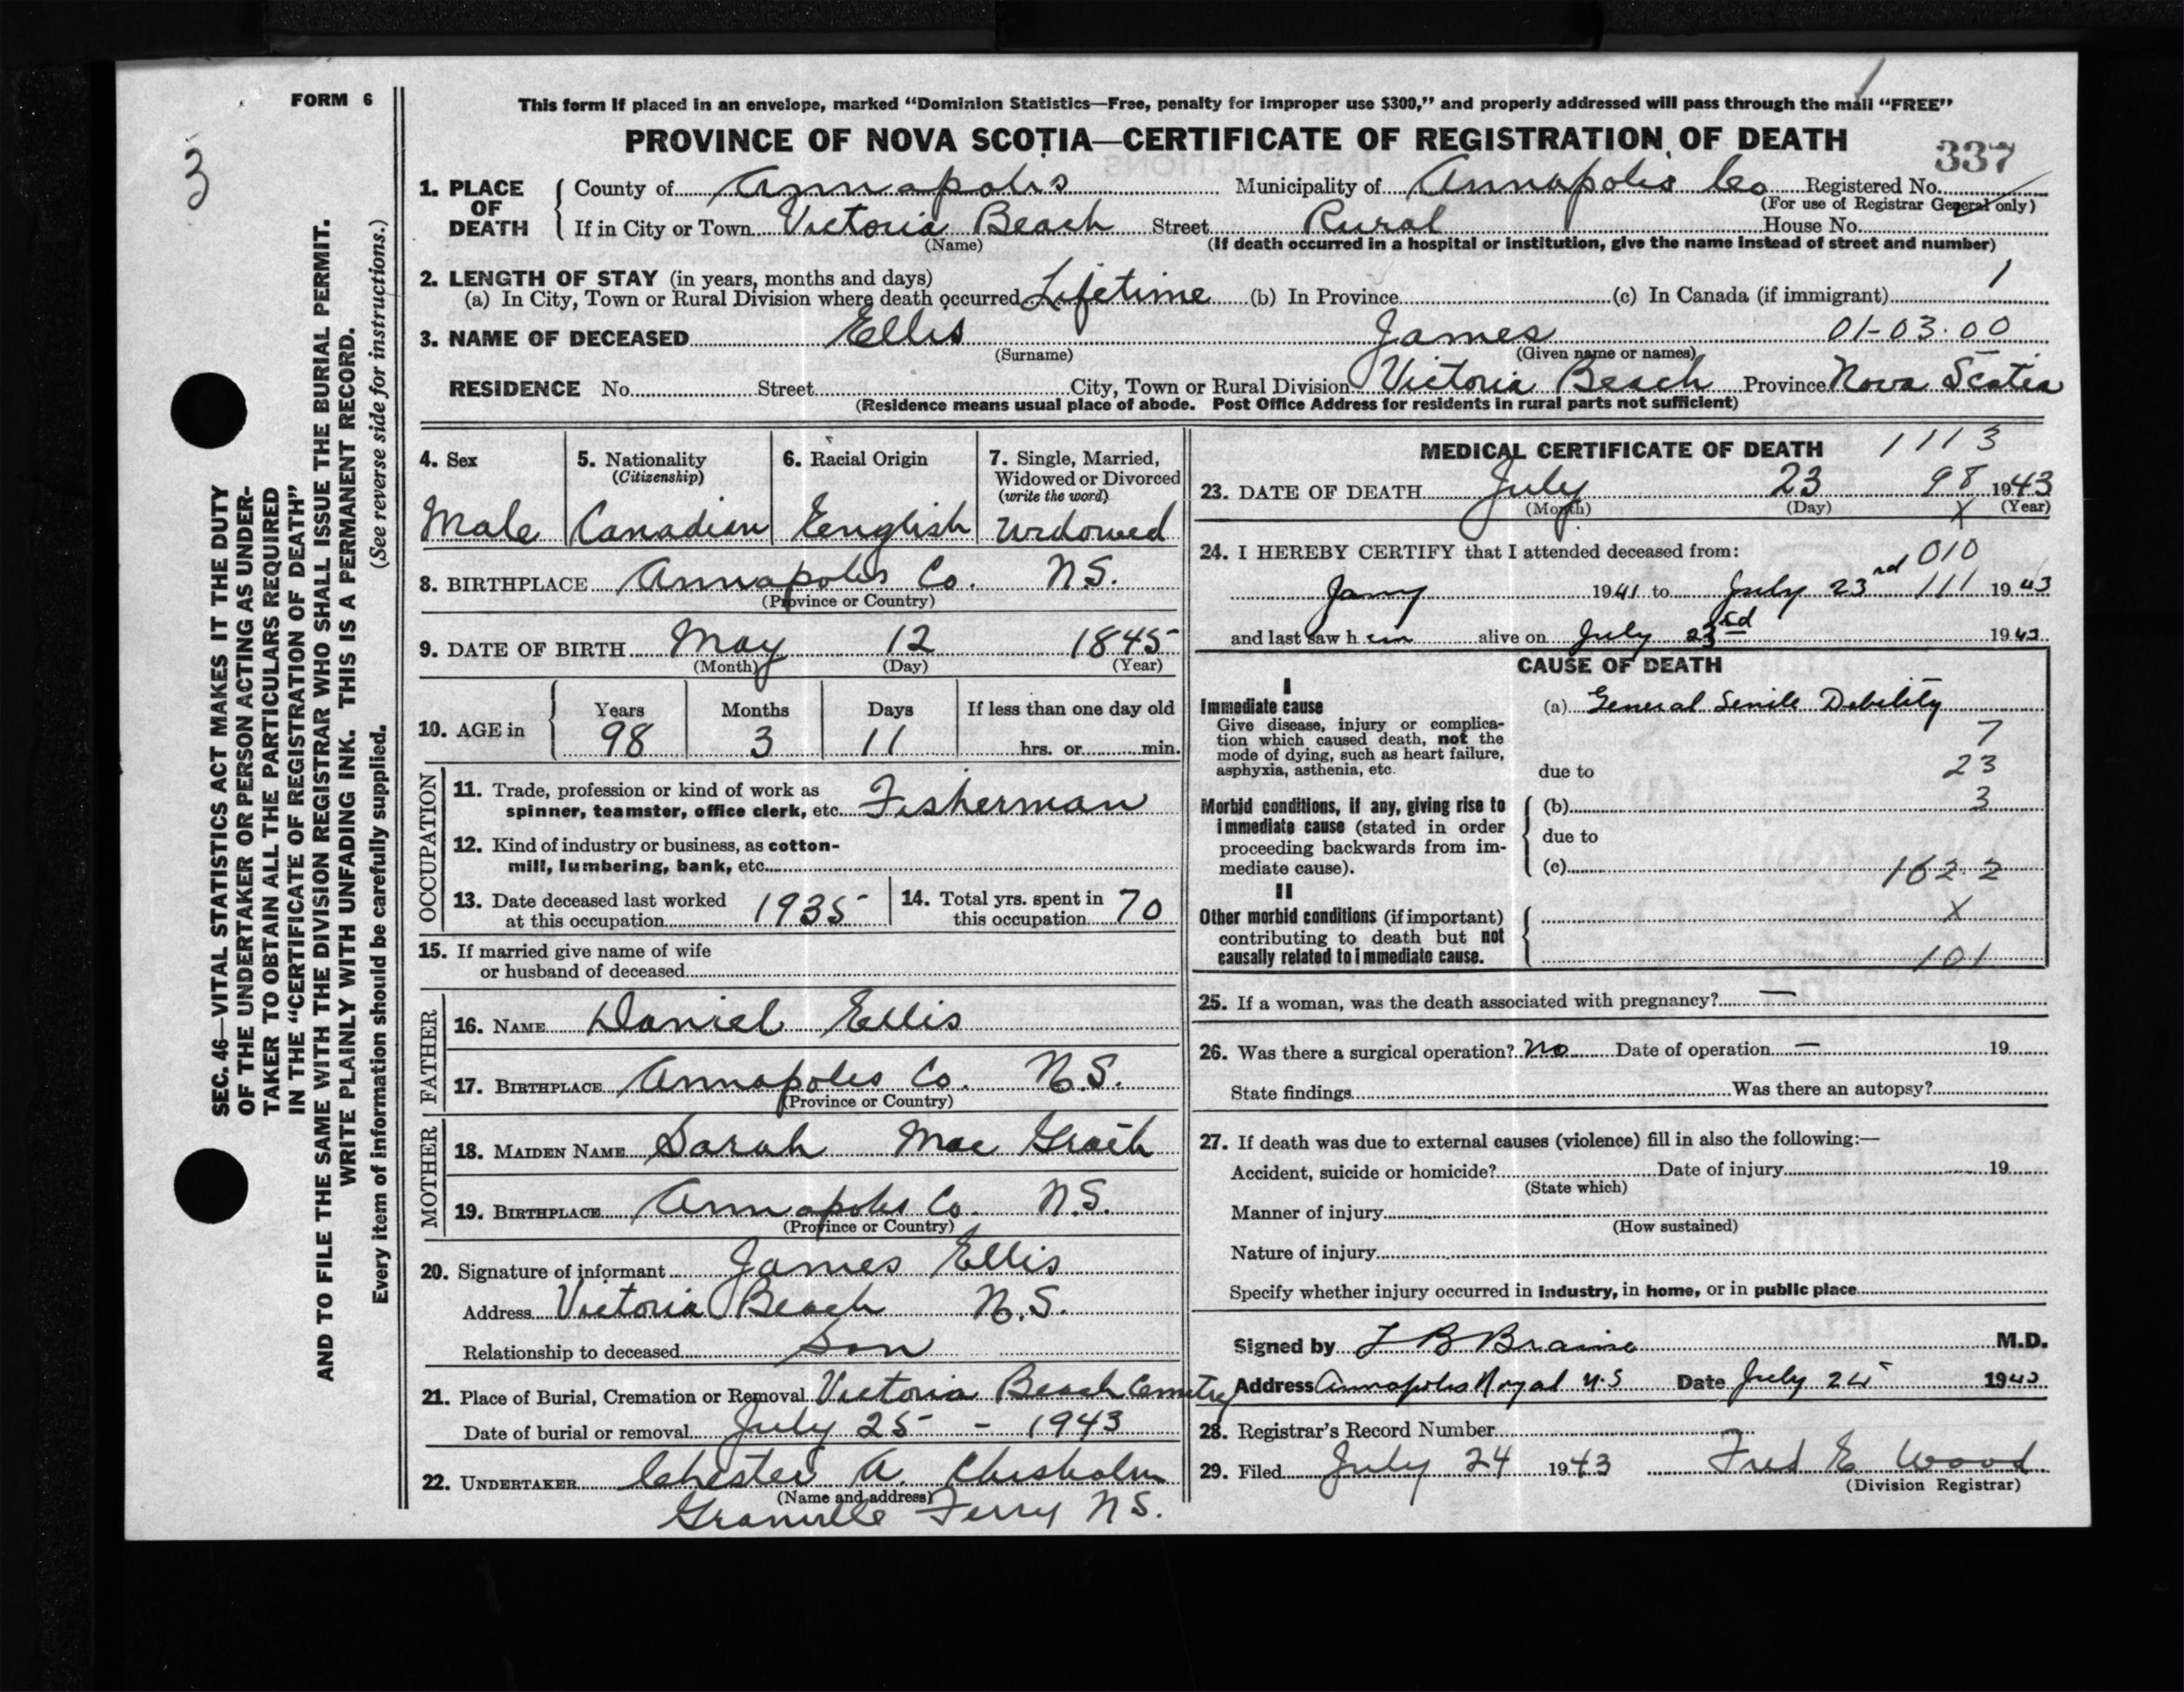 FORM 6
3
This form if placed in an envelope, marked “Dominion Statistics—Free, penalty for improper use $300,” and properly addressed will pass through the mail “FREE”
PROVINCE OF NOVA SCOTIA—CERTIFICATE OF REGISTRATION OF DEATH
337
1. PLACE OF DEATH County of Annapolis Municipality of Annapolis Co Registered No.
(For use of Registrar General only)
If in City or Town Victoria Beach Street Rural House No.
(Name) (If death occurred in a hospital or institution, give the name instead of street and number)
2. LENGTH OF STAY (in years, months and days) 1
(a) In City, Town or Rural Division where death occurred Lifetime (b) In Province (c) In Canada (if immigrant)
3. NAME OF DECEASED Ellis James 01-03.00
(Surname) (Given name or names)
RESIDENCE No. Street City, Town or Rural Division Victoria Beach Province Nova Scotia
(Residence means usual place of abode. Post Office Address for residents in rural parts not sufficient)
4. Sex
Male
5. Nationality
(Citizenship)
Canadian
6. Racial Origin
English
7. Single, Married,
Widowed or Divorced
(write the word)
Widowed
8. BIRTHPLACE Annapolis Co. N.S.
(Province or Country)
9. DATE OF BIRTH May 12 1845
(Month) (Day) (Year)
10. AGE in Years Months Days If less than one day old
98 3 11 hrs. or min.
OCCUPATION
11. Trade, profession or kind of work as
spinner, teamster, office clerk, etc. Fisherman
12. Kind of industry or business, as cotton-
mill, lumbering, bank, etc.
13. Date deceased last worked
at this occupation 1935
14. Total yrs. spent in
this occupation 70
15. If married give name of wife
or husband of deceased
FATHER
16. NAME Daniel Ellis
17. BIRTHPLACE Annapolis Co. N.S.
(Province or Country)
MOTHER
18. MAIDEN NAME Sarah Mac Grath
19. BIRTHPLACE Annapolis Co. N.S.
(Province or Country)
20. Signature of informant James Ellis
Address Victoria Beach N.S.
Relationship to deceased Son
21. Place of Burial, Cremation or Removal Victoria Beach Cemetry
Date of burial or removal July 25 - 1943
22. UNDERTAKER Chester A. Chisholm
(Name and address)
Granville Ferry N S.
MEDICAL CERTIFICATE OF DEATH 1113
23. DATE OF DEATH July 23 98 1943
(Month) (Day) X (Year)
24. I HEREBY CERTIFY that I attended deceased from: 010
Jany 1941 to July 23rd 111 1943
and last saw h im alive on July 23rd 1943
CAUSE OF DEATH
I
Immediate cause
Give disease, injury or complica-
tion which caused death, not the
mode of dying, such as heart failure,
asphyxia, asthenia, etc.
(a) General Senile Debility
7
due to 23
Morbid conditions, if any, giving rise to
immediate cause (stated in order
proceeding backwards from im-
mediate cause).
(b) 3
due to
(c) 162.2
II
Other morbid conditions (if important)
contributing to death but not
causally related to immediate cause.
X
101
25. If a woman, was the death associated with pregnancy? —
26. Was there a surgical operation? No Date of operation — 19
State findings Was there an autopsy?
27. If death was due to external causes (violence) fill in also the following:—
Accident, suicide or homicide? Date of injury 19
(State which)
Manner of injury
(How sustained)
Nature of injury
Specify whether injury occurred in industry, in home, or in public place
Signed by M.D.
Address Annapolis Royal N.S Date July 1943
28. Registrar's Record Number
29. Filed July 24 1943 Fred E Wood
(Division Registrar)
SEC. 46—VITAL STATISTICS ACT MAKES IT THE DUTY
OF THE UNDERTAKER OR PERSON ACTING AS UNDER-
TAKER TO OBTAIN ALL THE PARTICULARS REQUIRED
IN THE “CERTIFICATE OF REGISTRATION OF DEATH”
AND TO FILE THE SAME WITH THE DIVISION REGISTRAR WHO SHALL ISSUE THE BURIAL PERMIT.
WRITE PLAINLY WITH UNFADING INK. THIS IS A PERMANENT RECORD.
Every item of information should be carefully supplied. (See reverse side for instructions.)